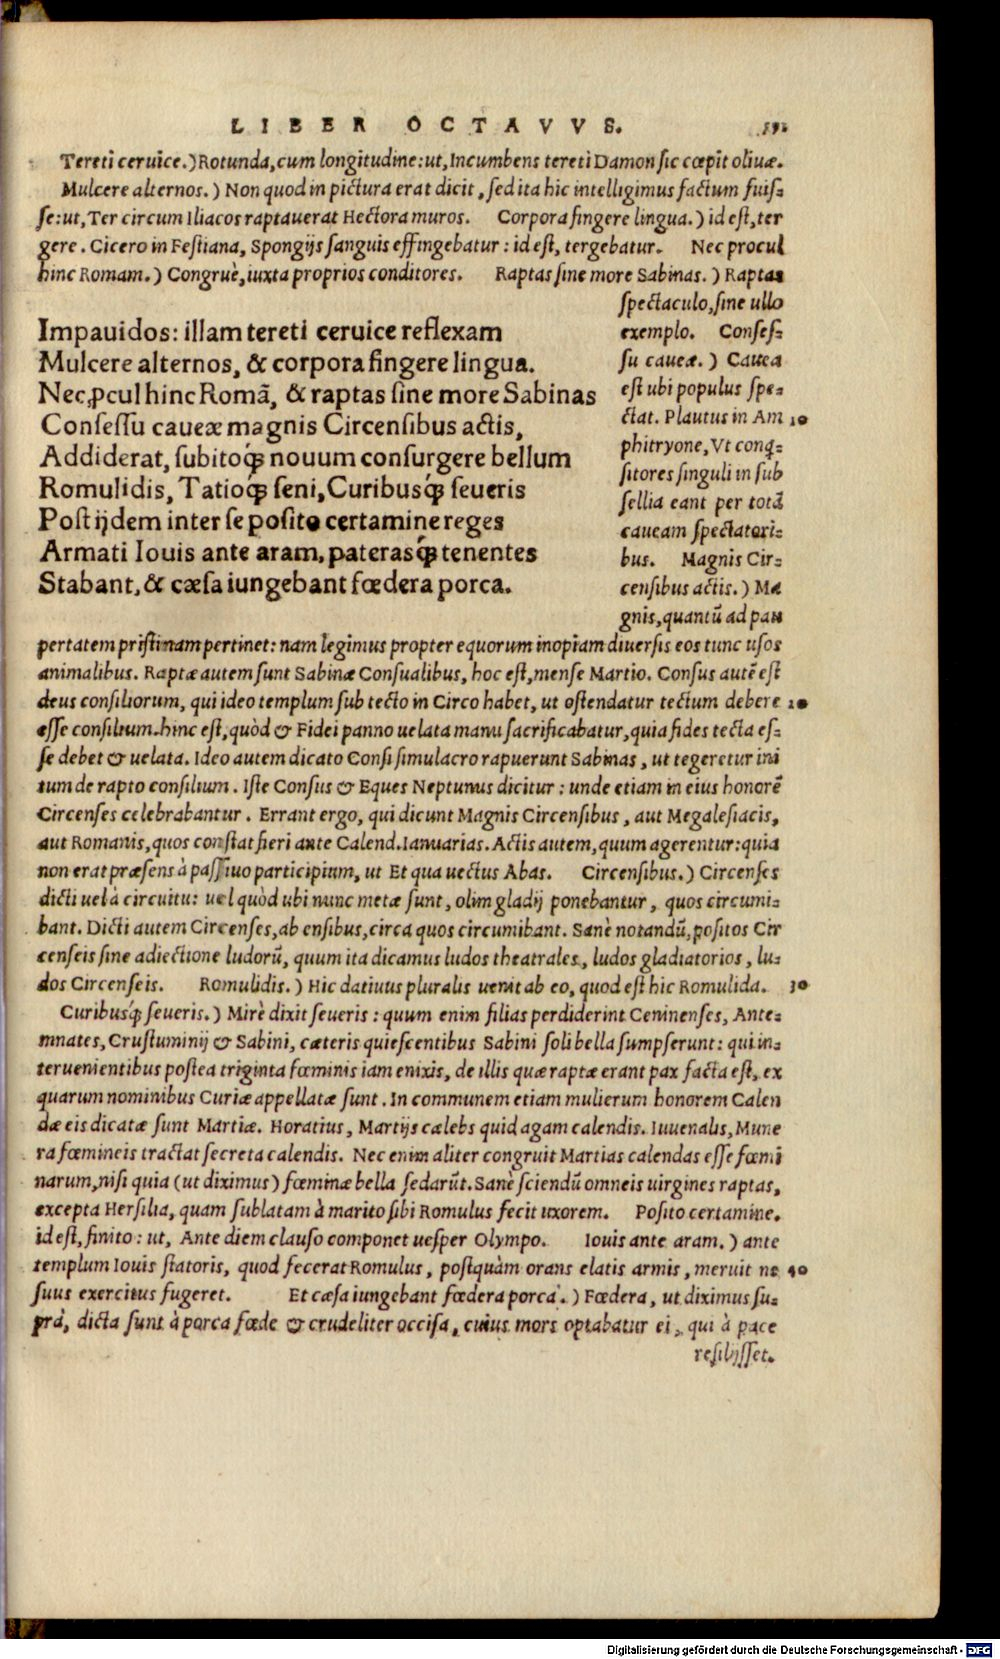 LIBER OCTAVVS. 591
Tereti ceruice.) Rotunda, cum longitudine: ut, Incumbens tereti Damon sic cœpit oliuæ.
Mulcere alternos.) Non quod in pictura erat dicit, sed ita hic intelligimus factum fuis=
se: ut, Ter circum Iliacos raptauerat Hectora muros. Corpora fingere lingua.) id est, ter
gere. Cicero in Festiana, Spongijs sanguis effingebatur: id est, tergebatur. Nec procul
hinc Romam.) Congruè, iuxta proprios conditores. Raptas sine more Sabinas.) Raptas
spectaculo, sine ullo
exemplo. Conses=
su caueæ.) Cauea
est ubi populus spe=
ctat. Plautus in Am 10
phitryone, Vt conq̃=
sitores singuli in sub
sellia eant per totã
caueam spectatori=
bus. Magnis Cir=
censibus actis.) Ma
gnis, quantũ ad pau
Impauidos: illam tereti ceruice reflexam
Mulcere alternos, & corpora fingere lingua.
Nec ꝓcul hinc Romã, & raptas sine more Sabinas
Consessu caueæ magnis Circensibus actis,
Addiderat, subitoq́; nouum consurgere bellum
Romulidis, Tatioq́; seni, Curibusq́; seueris
Post ijdem inter se posito certamine reges
Armati Iouis ante aram, paterasq́; tenentes
Stabant, & cæsa iungebant fœdera porca.
pertatem pristinam pertinet: nam legimus propter equorum inopiam diuersis eos tunc usos
animalibus. Raptæ autem sunt Sabinæ Consualibus, hoc est, mense Martio. Consus autẽ est
deus consiliorum, qui ideo templum sub tecto in Circo habet, ut ostendatur tectum debere 20
esse consilium. hinc est, quòd & Fidei panno uelata manu sacrificabatur, quia fides tecta es=
se debet & uelata. Ideo autem dicato Consi simulacro rapuerunt Sabinas, ut tegeretur ini
tum de rapto consilium. Iste Consus & Eques Neptunus dicitur: unde etiam in eius honorẽ
Circenses celebrabantur. Errant ergo, qui dicunt Magnis Circensibus, aut Megalesiacis,
aut Romanis, quos constat fieri ante Calend. Ianuarias. Actis autem, quum agerentur: quia
non erat præsens à passiuo participium, ut Et qua uectus Abas. Circensibus.) Circenses
dicti uel à circuitu: uel quòd ubi nunc metæ sunt, olim gladij ponebantur, quos circumi=
bant. Dicti autem Circenses, ab ensibus, circa quos circumibant. Sanè notandũ, positos Cir
censeis sine adiectione ludorũ, quum ita dicamus ludos theatrales, ludos gladiatorios, lu=
dos Circenseis. Romulidis.) Hic datiuus pluralis uenit ab eo, quod est hic Romulida. 30
Curibusq́; seueris.) Mirè dixit seueris: quum enim filias perdiderint Ceninenses, Ante=
mnates, Crustuminij & Sabini, cæteris quiescentibus Sabini soli bella sumpserunt: qui in=
teruenientibus postea triginta fœminis iam enixis, de illis quæ raptæ erant pax facta est, ex
quarum nominibus Curiæ appellatæ sunt. In communem etiam mulierum honorem Calen
dæ eis dicatæ sunt Martiæ. Horatius, Martijs cælebs quid agam calendis. Iuuenalis, Mune
ra fœmineis tractat secreta calendis. Nec enim aliter congruit Martias calendas esse fœmi
narum, nisi quia (ut diximus) fœminæ bella sedarũt. Sanè sciendũ omneis uirgines raptas,
excepta Hersilia, quam sublatam à marito sibi Romulus fecit uxorem. Posito certamine.
id est, finito: ut, Ante diem clauso componet uesper Olympo. Iouis ante aram.) ante
templum Iouis statoris, quod fecerat Romulus, postquàm orans elatis armis, meruit ne 40
suus exercitus fugeret. Et cæsa iungebant fœdera porca.) Fœdera, ut diximus su=
prà, dicta sunt à porca fœde & crudeliter occisa, cuius mors optabatur ei, qui à pace
resilijsset.
Digitalisierung gefördert durch die Deutsche Forschungsgemeinschaft - DFG